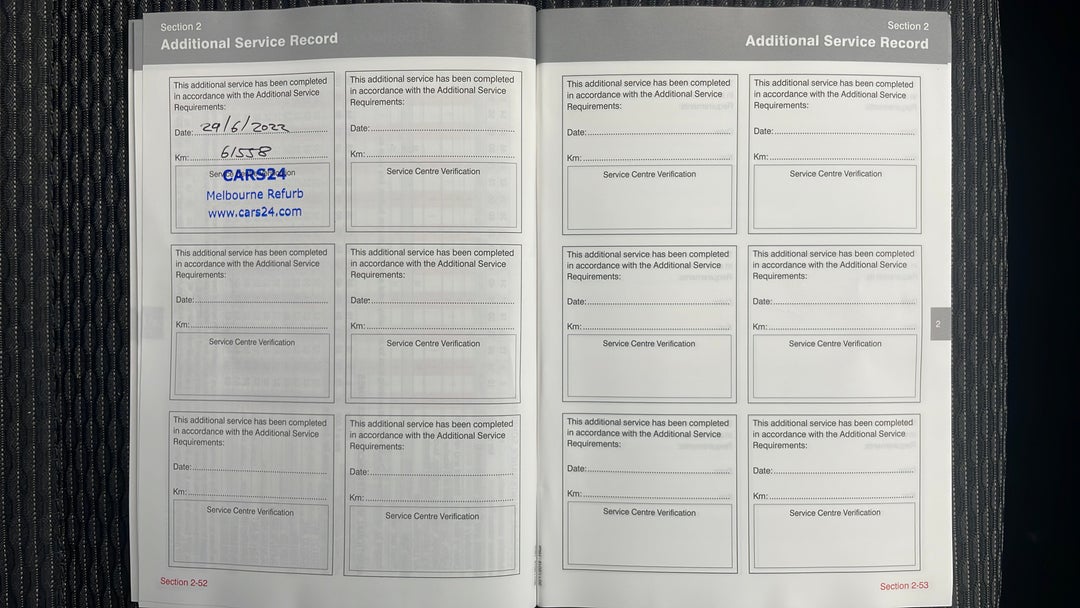 Section 2
Additional Service Record
This additional service has been completed
in accordance with the Additional Service
Requirements:
Date: 29/6/2022
Km: 61558
Service Centre Verification
CARS24
Melbourne Refurb
www.cars24.com
This additional service has been completed
in accordance with the Additional Service
Requirements:
Date:
Km:
Service Centre Verification
This additional service has been completed
in accordance with the Additional Service
Requirements:
Date:
Km:
Service Centre Verification
This additional service has been completed
in accordance with the Additional Service
Requirements:
Date:
Km:
Service Centre Verification
This additional service has been completed
in accordance with the Additional Service
Requirements:
Date:
Km:
Service Centre Verification
This additional service has been completed
in accordance with the Additional Service
Requirements:
Date:
Km:
Service Centre Verification
Section 2-52
Section 2
Additional Service Record
This additional service has been completed
in accordance with the Additional Service
Requirements:
Date:
Km:
Service Centre Verification
This additional service has been completed
in accordance with the Additional Service
Requirements:
Date:
Km:
Service Centre Verification
This additional service has been completed
in accordance with the Additional Service
Requirements:
Date:
Km:
Service Centre Verification
This additional service has been completed
in accordance with the Additional Service
Requirements:
Date:
Km:
Service Centre Verification
2
This additional service has been completed
in accordance with the Additional Service
Requirements:
Date:
Km:
Service Centre Verification
This additional service has been completed
in accordance with the Additional Service
Requirements:
Date:
Km:
Service Centre Verification
Section 2-53